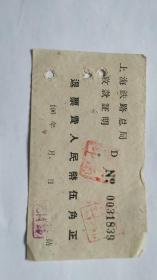 上海铁路总局
收款证明
D
№ 0031839
退票費人民幣伍角正
196 年 月 日
站